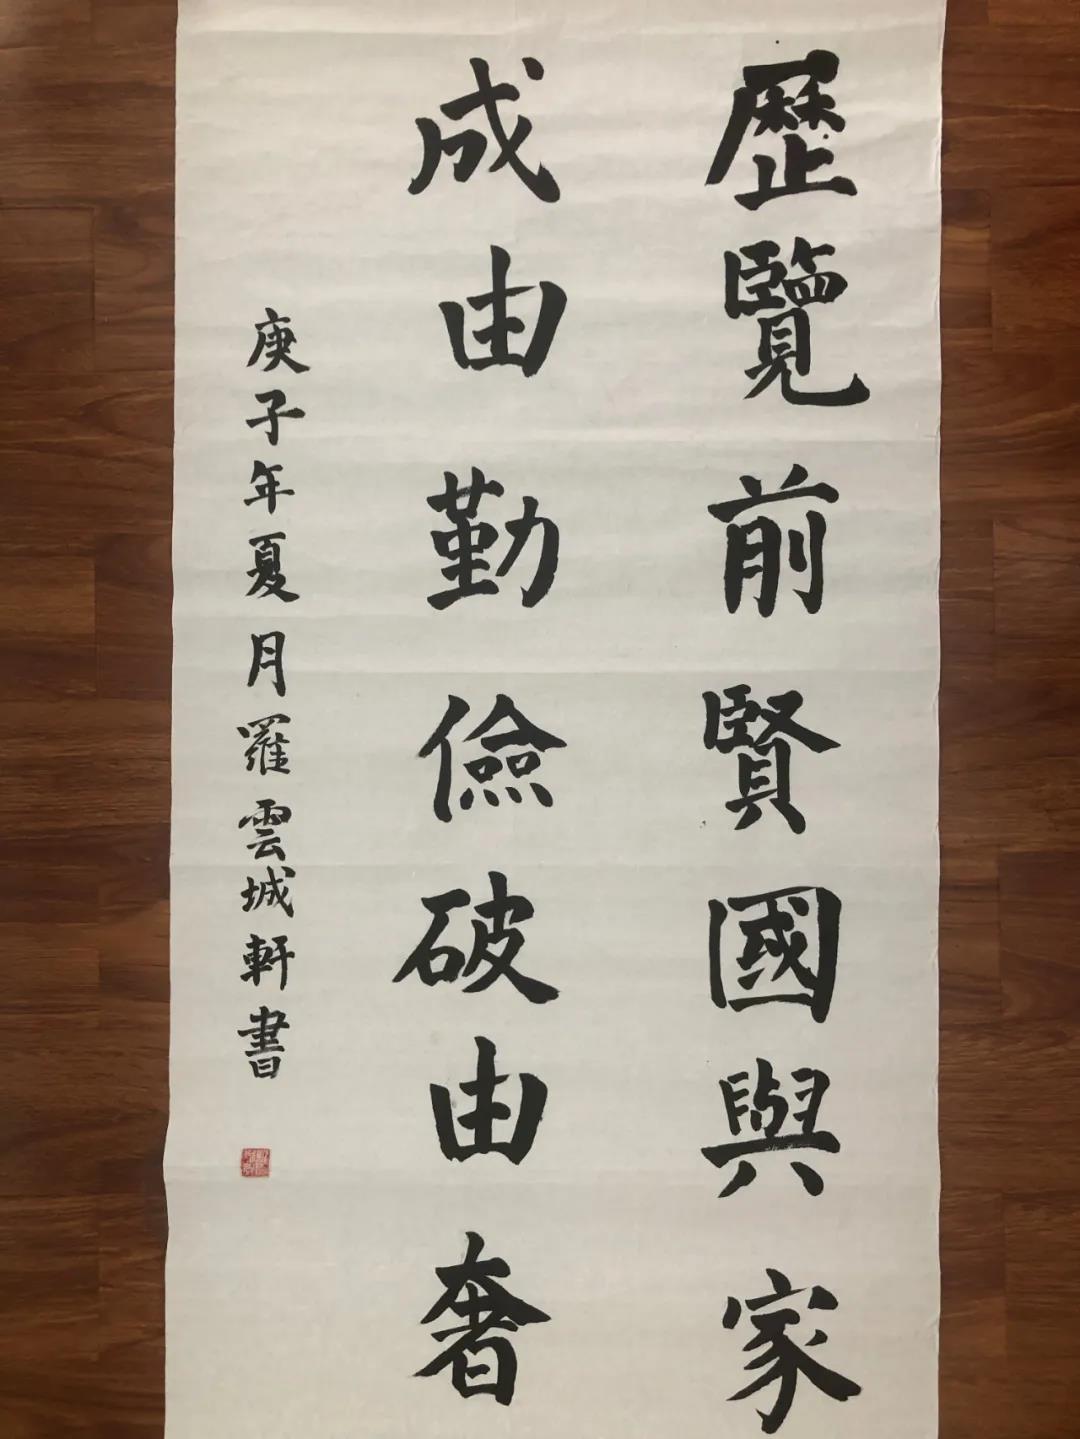 歷覽前賢國與家
成由勤儉破由奢
庚子年夏月羅雲城軒書